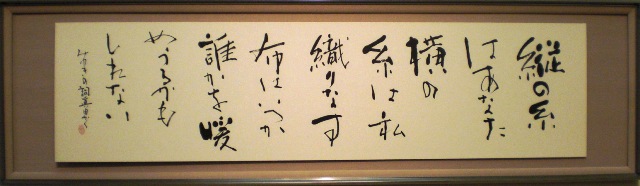 縦の糸
はあなた
横の
糸は私
織りなす
布はいつか
誰かを暖
めうるかも
しれない